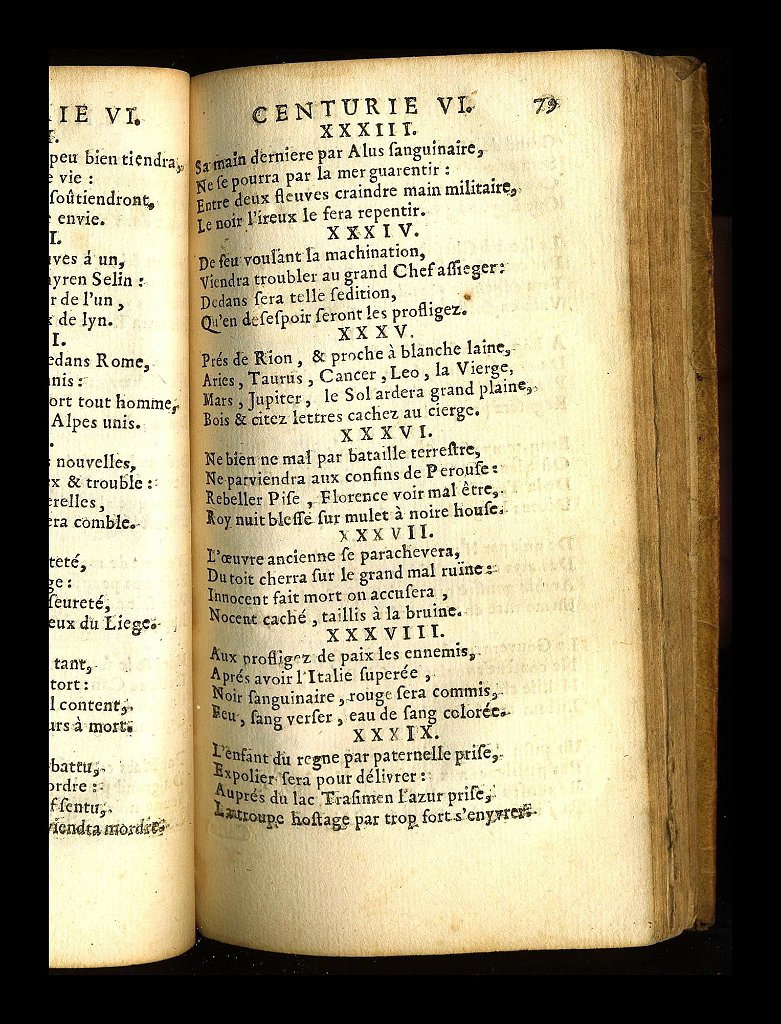 IE VI.
I.
peu bien tiendra,
e vie :
ſoûtiendront,
envie.
I.
ves á un,
yren Selin :
r de l'un ,
x de lyn.
I.
edans Rome,
nis :
ort tout homme,
Alpes unis.
nouvelles,
x & trouble :
erelles,
era comble.
teté,
ge :
ſeureté,
eux du Liege.
tant,
tort :
l content,
urs à mort.
battu,
ordre :
ſſentu,
viendta mordre.
CENTURIE VI. 79
XXXIII.
Sa main derniere par Alus ſanguinaire,
Ne ſe pourra par la mer guarentir :
Entre deux fleuves craindre main militaire,
Le noir l'ireux le fera repentir.
XXXIV.
De feu voulant la machination,
Viendra troubler au grand Chef aſſieger :
Dedans ſera telle ſedition,
Qu'en deſeſpoir ſeront les profligez.
XXXV.
Prés de Rion , & proche à blanche laine,
Aries , Taurus , Cancer , Leo , la Vierge,
Mars , Jupiter , le Sol ardera grand plaine,
Bois & citez lettres cachez au cierge.
XXXVI.
Ne bien ne mal par bataille terreſtre,
Ne parviendra aux confins de Perouſe :
Rebeller Piſe , Florence voir mal être,
Roy nuit bleſſé ſur mulet à noire houſe.
XXXVII.
L'œuvre ancienne ſe parachevera,
Du toit cherra ſur le grand mal ruïne :
Innocent fait mort on accuſera ,
Nocent caché , taillis à la bruine.
XXXVIII.
Aux profligez de paix les ennemis,
Aprés avoir l'Italie ſuperée ,
Noir ſanguinaire , rouge ſera commis,
Feu , ſang verſer , eau de ſang colorée.
XXXIX.
L'enfant du regne par paternelle priſe,
Expolier ſera pour délivrer :
Auprés du lac Traſimen l'azur priſe,
La troupe hoſtage par trop fort s'enyvrer.